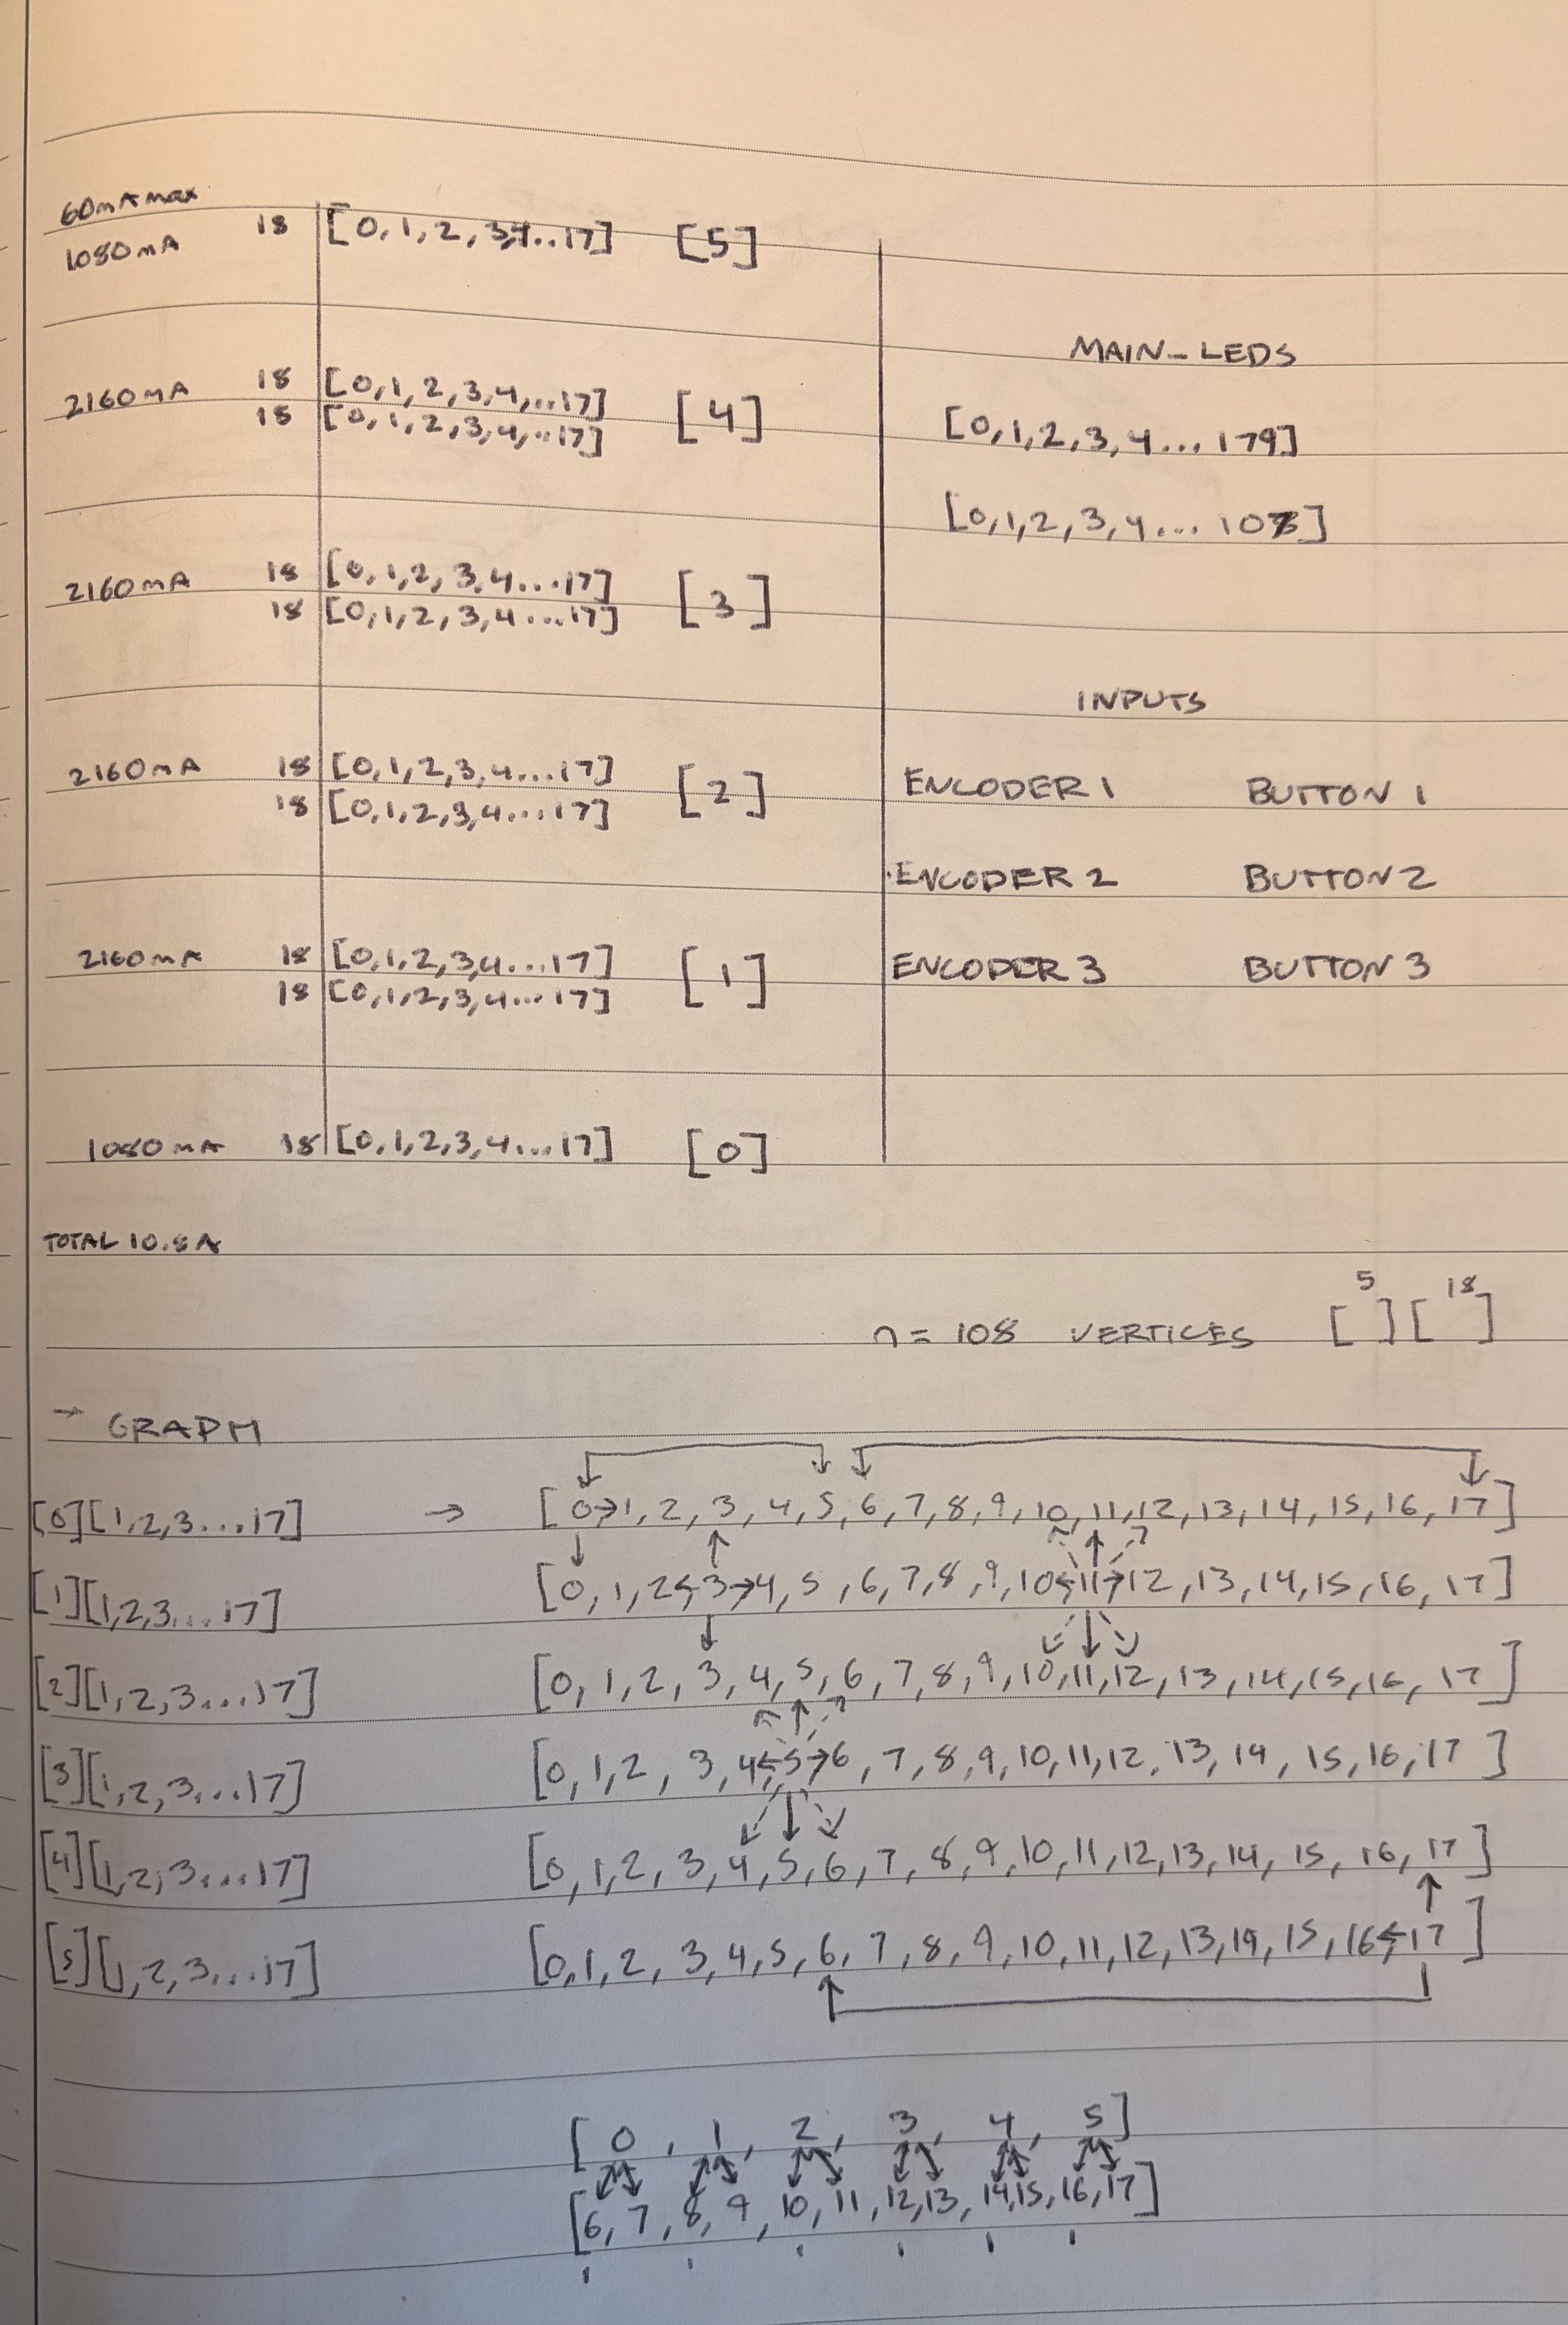 60mA max
1080mA 18 [0,1,2,3,4...17] [5]
MAIN_LEDS
2160mA 18 [0,1,2,3,4,...17] [4]
18 [0,1,2,3,4,...17]
[0,1,2,3,4...179]
[0,1,2,3,4...107]
2160mA 18 [0,1,2,3,4...17] [3]
18 [0,1,2,3,4...17]
INPUTS
2160mA 18 [0,1,2,3,4...17] [2]
18 [0,1,2,3,4...17]
ENCODER 1 BUTTON 1
ENCODER 2 BUTTON 2
2160mA 18 [0,1,2,3,4...17] [1]
18 [0,1,2,3,4...17]
ENCODER 3 BUTTON 3
1080mA 18 [0,1,2,3,4...17] [0]
TOTAL 10.8A
n = 108 VERTICES [5][18]
→ GRAPH
[0][1,2,3...17] → [0→1,2,3,4,5,6,7,8,9,10,11,12,13,14,15,16,17]
[1][1,2,3...17] [0,1,2←3→4,5,6,7,8,9,10←11→12,13,14,15,16,17]
[2][1,2,3...17] [0,1,2,3,4,5,6,7,8,9,10,11,12,13,14,15,16,17]
[3][1,2,3...17] [0,1,2,3,4←5→6,7,8,9,10,11,12,13,14,15,16,17]
[4][1,2,3...17] [0,1,2,3,4,5,6,7,8,9,10,11,12,13,14,15,16,17]
[5][1,2,3...17] [0,1,2,3,4,5,6,7,8,9,10,11,12,13,14,15,16←17]
[0,1,2,3,4,5]
[6,7,8,9,10,11,12,13,14,15,16,17]